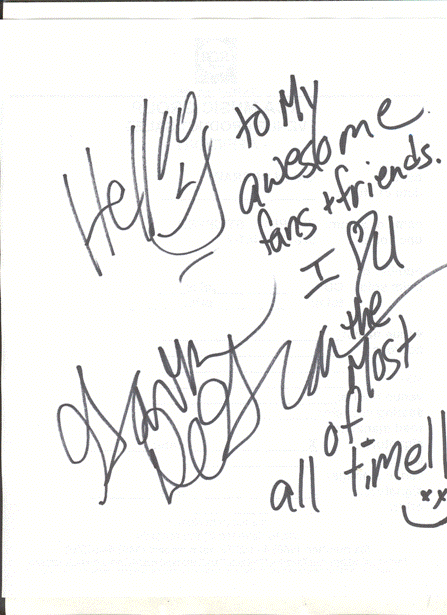 Hello
to My
awesome
fans + friends.
I ♡ U
the
Most
of
all time!!
xx